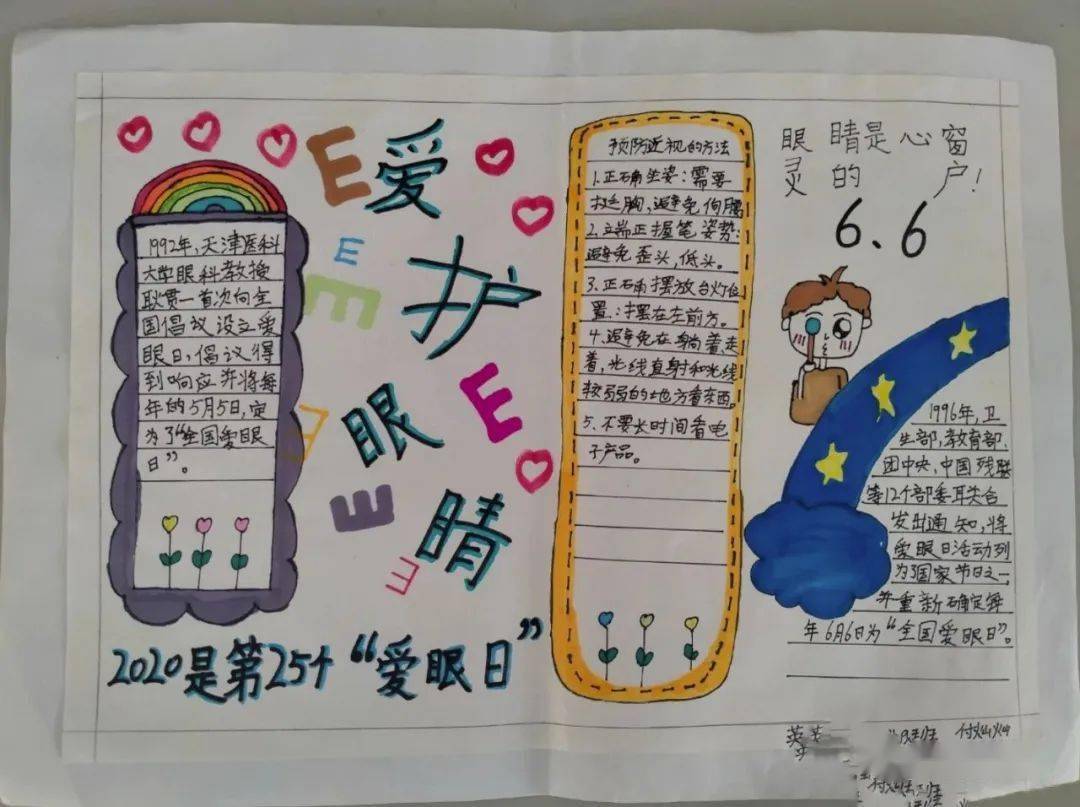 爱
护
眼
睛
E
E
E
E
E
E
E
1992年，天津医科
大学眼科教授
耿贯一首次向全
国倡议设立爱
眼日，倡议得
到响应并将每
年的5月5日，定
为了“全国爱眼
日”。
2020是第25个“爱眼日”
预防近视的方法
1.正确坐姿：需要
挺胸，避免佝腰
2.端正握笔姿势：
避免歪头，低头。
3.正确摆放台灯位
置：摆在左前方。
4.避免在躺着，走
着，光线直射和光线
较弱的地方看东西。
5.不要长时间看电
子产品。
眼睛是心
灵的窗户！
6.6
1996年，卫
生部，教育部，
团中央，中国残联
等12个部委联合
发出通知，将
爱眼日活动列
为了国家节日之一
并重新确定每
年6月6日为“全国爱眼日”。